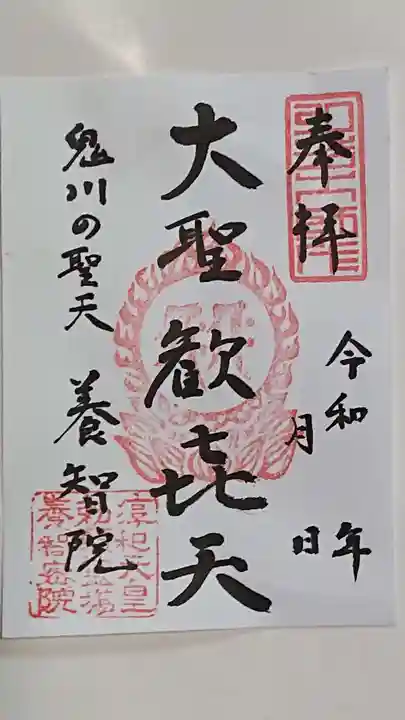 奉拝
令和 年
月 日
大聖歓㐂天
鬼川の聖天 養智院
淳和天皇
養智院